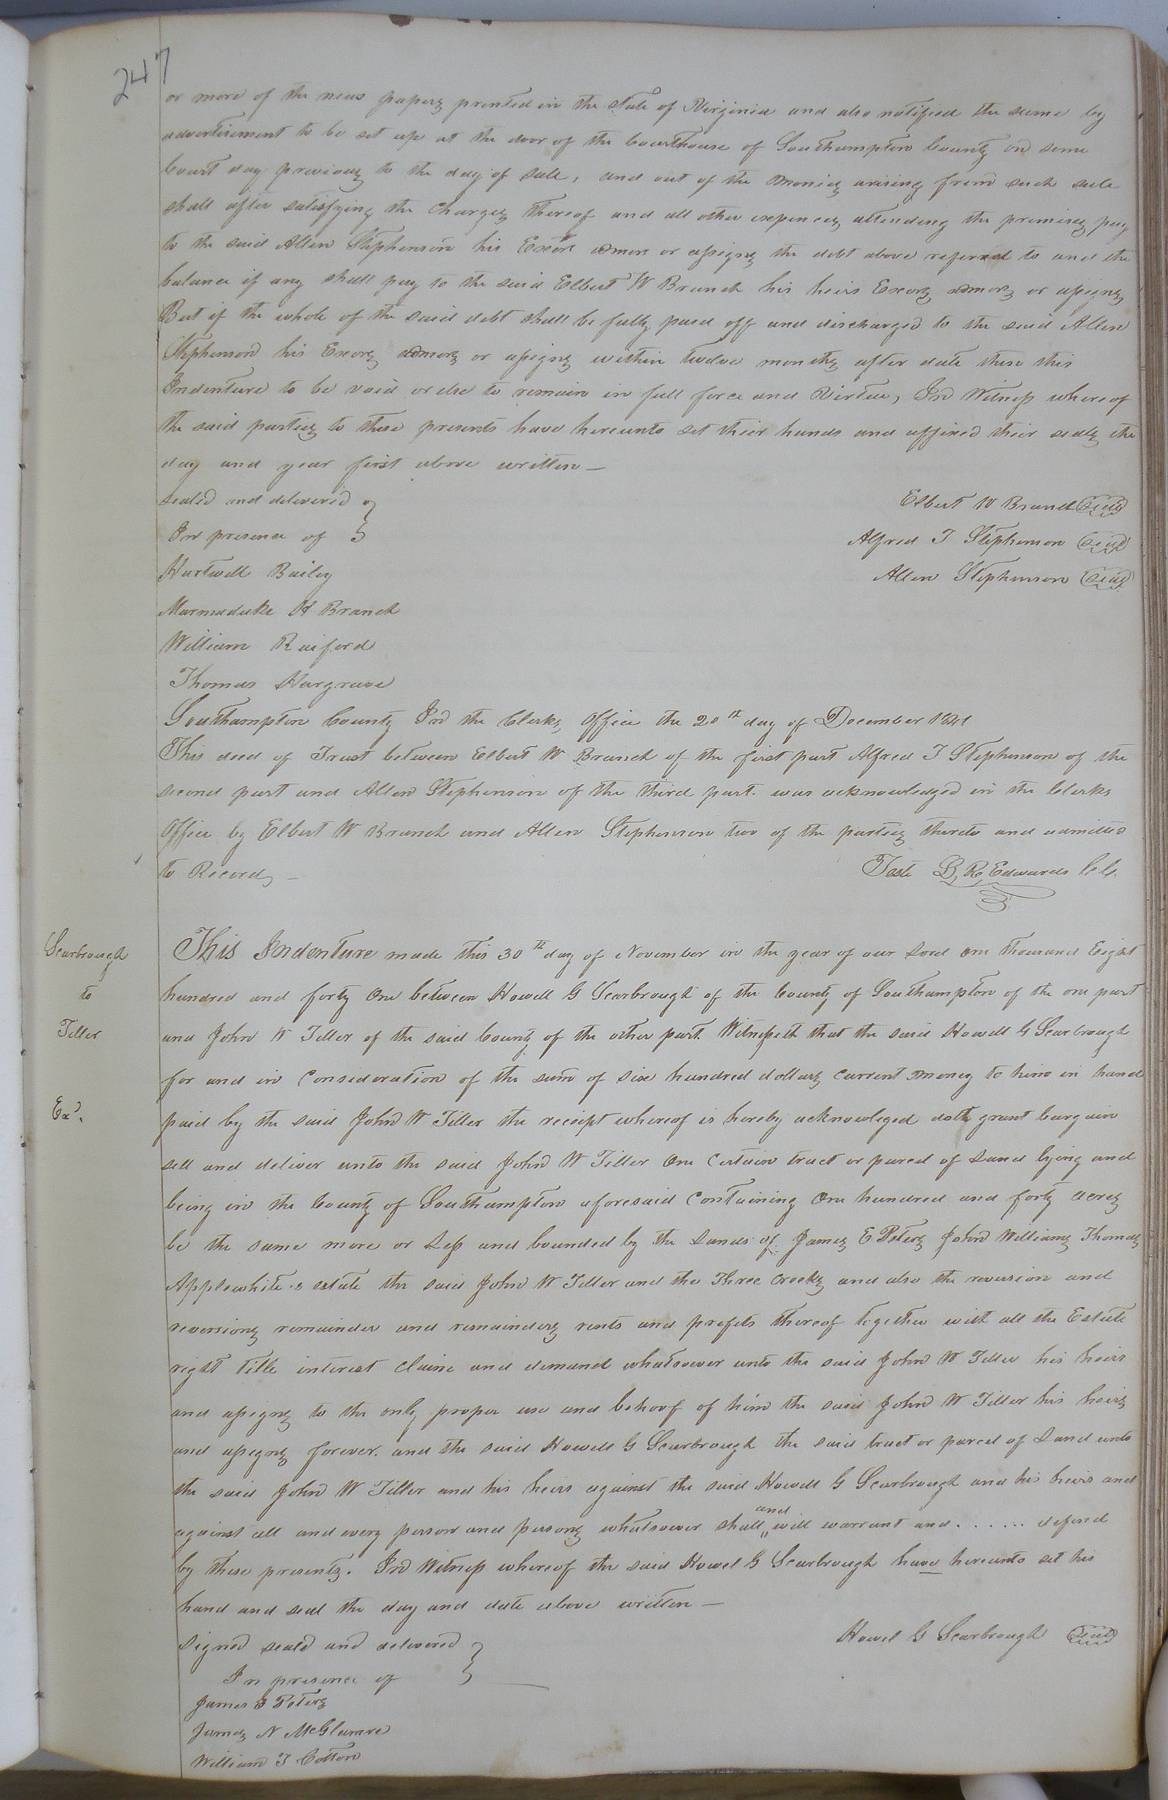 247
or more of the news papers printed in the State of Virginia and also notified the same by
advertisement to be set up at the door of the Courthouse of Southampton County on some
Court day previous to the day of sale, and out of the monies arising from such sale
shall after satisfying the charges thereof and all other expences attending the premises pay
to the said Allen Stephenson his Exors admors or assigns the debt above referred to and the
balance if any shall pay to the said Elbert W Branch his heirs Exors admors or assigns
But if the whole of the said debt shall be fully paid off and discharged to the said Allen
Stephenson his Exors admors or assigns within twelve months after date then this
Indenture to be void or else to remain in full force and Virtue, In Witness whereof
the said parties to these presents have hereunto set their hands and affixed their seals the
day and year first above written —
sealed and delivered } Elbert W Branch (seal)
In presence of } Alfred T Stephenson (seal)
Hartwell Bailey Allen Stephenson (seal)
Marmaduke H Branch
William Raiford
Thomas Hargrave
Southampton County In the Clerks Office the 20th day of December 1841
This deed of Trust between Elbert W Branch of the first part Alfred T Stephenson of the
second part and Allen Stephenson of the third part was acknowledged in the Clerks
Office by Elbert W Branch and Allen Stephenson two of the parties thereto and admitted
to Record, — Teste L. R. Edwards Clk.
Scarbrough
to
Tiller
Exd.
This Indenture made this 30th day of November in the year of our Lord one thousand Eight
hundred and forty One between Howell G Scarbrough of the County of Southampton of the one part
and John W Tiller of the said County of the other part. Witnesseth that the said Howell G Scarbrough
for and in consideration of the sum of six hundred dollars current money to him in hand
paid by the said John W Tiller the receipt whereof is hereby acknowleged doth grant bargain
sell and deliver unto the said John W Tiller One certain tract or parcel of Land lying and
being in the County of Southampton aforesaid containing One hundred and forty acres
be the same more or Less and bounded by the Lands of James E Peters John Williams Thomas
Applewhite's estate the said John W Tiller and the Three creeks and also the reversion and
reversions remainder and remainders rents and profits thereof together with all the Estate
right title interest claim and demand whatsoever unto the said John W Tiller his heirs
and assigns to the only proper use and behoof of him the said John W Tiller his heirs
and assigns forever. and the said Howell G Scarbrough the said tract or parcel of Land unto
the said John W Tiller and his heirs against the said Howell G Scarbrough and his heirs and
against all and every person and persons whatsoever shall and will warrant and ...... defend
by these presents. In Witness whereof the said Howel G Scarbrough have hereunto set his
hand and seal the day and date above written —
Signed seald and delivered } Howel G Scarbrough (seal)
In presence of }
James E Peters
James N McGlamre
William T Cotton